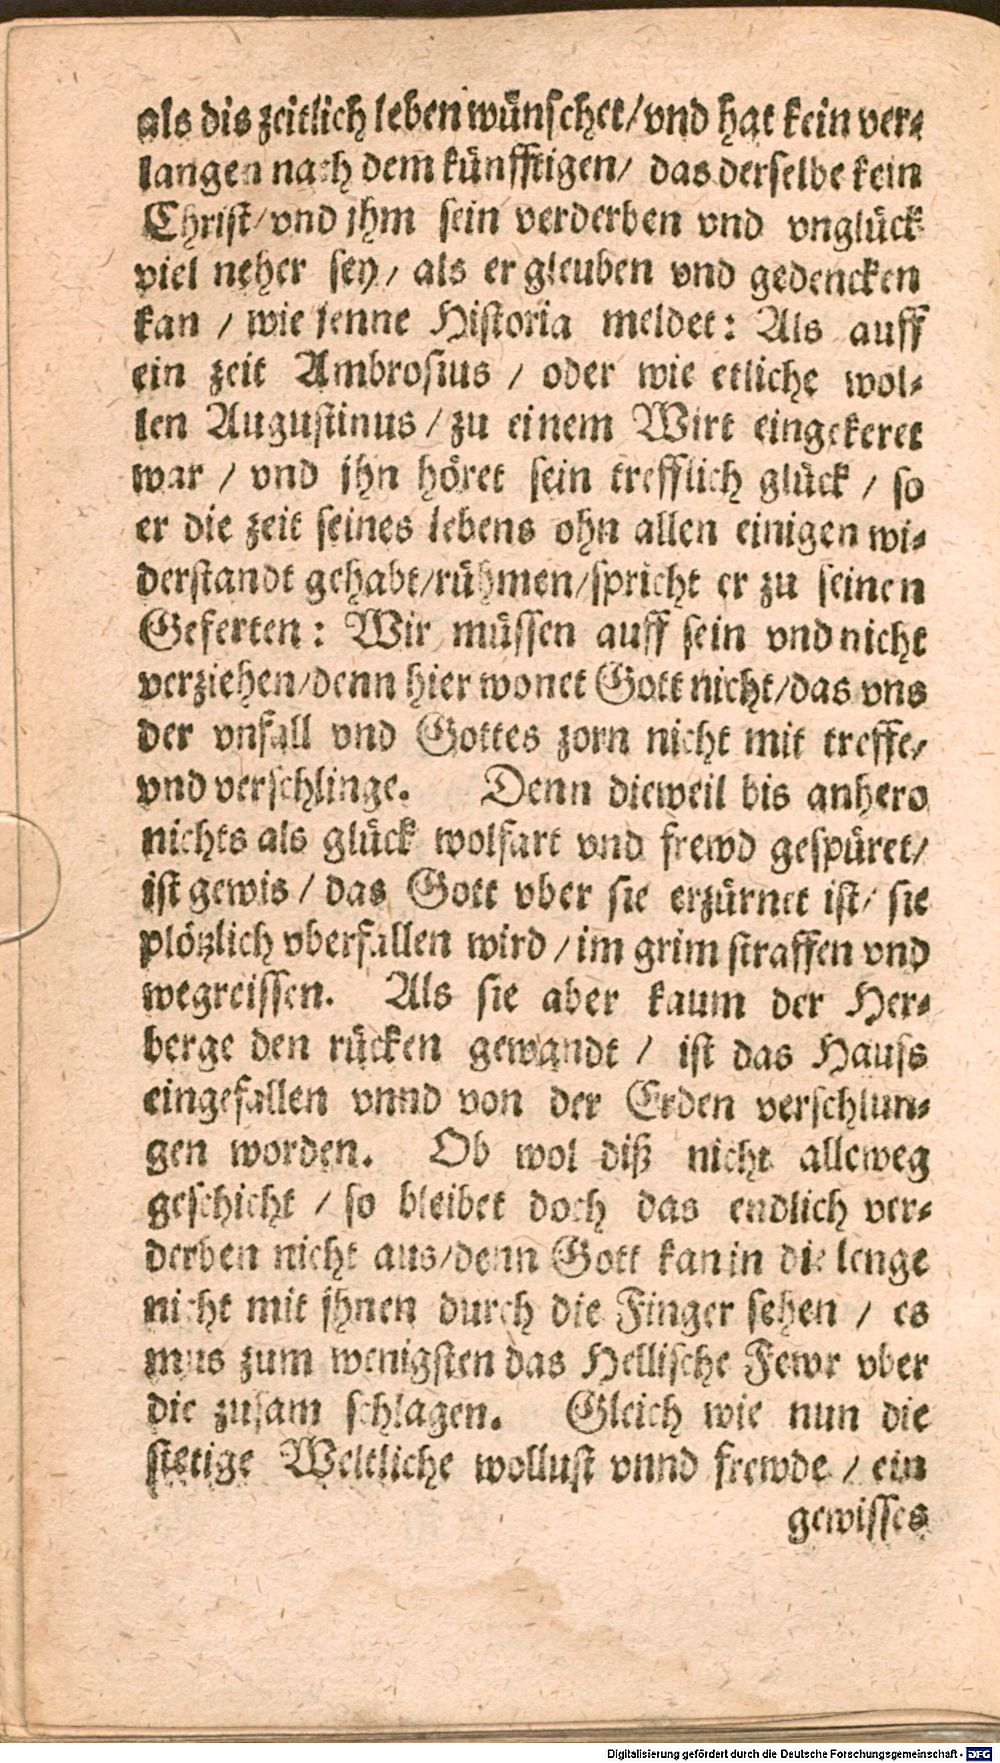 als dis zeitlich leben wünschet/vnd hat kein ver-
langen nach dem künfftigen/ das derselbe kein
Christ/vnd jhm sein verderben vnd vnglück
viel neher sey/ als er gleuben vnd gedencken
kan / wie jenne Historia meldet: Als auff
ein zeit Ambrosius / oder wie etliche wol-
len Augustinus / zu einem Wirt eingekeret
war / vnd jhn höret sein trefflich glück / so
er die zeit seines lebens ohn allen einigen wi-
derstandt gehabt/rühmen/spricht er zu seinen
Geferten: Wir müssen auff sein vnd nicht
verziehen/denn hier wonet Gott nicht/das vns
der vnfall vnd Gottes zorn nicht mit treffe/
vnd verschlinge. Denn dieweil bis anhero
nichts als glück wolfart vnd frewd gespüret/
ist gewis / das Gott vber sie erzürnet ist/ sie
plötzlich vberfallen wird / im grim straffen vnd
wegreissen. Als sie aber kaum der Her-
berge den rücken gewandt / ist das Hauss
eingefallen vnnd von der Erden verschlun-
gen worden. Ob wol diß nicht alleweg
geschicht / so bleibet doch das endlich ver-
derben nicht aus/denn Gott kan in die lenge
nicht mit jhnen durch die Finger sehen / es
mus zum wenigsten das Hellische Fewr vber
die zusam schlagen. Gleich wie nun die
stetige Weltliche wollust vnnd frewde / ein
gewisses
Digitalisierung gefördert durch die Deutsche Forschungsgemeinschaft - DFG